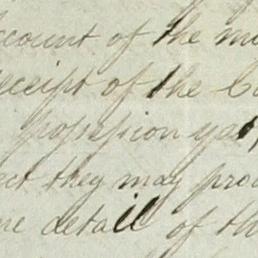 ccount of the m
eceipt of the C
possession yet,
ect they may pro
ne detail of th